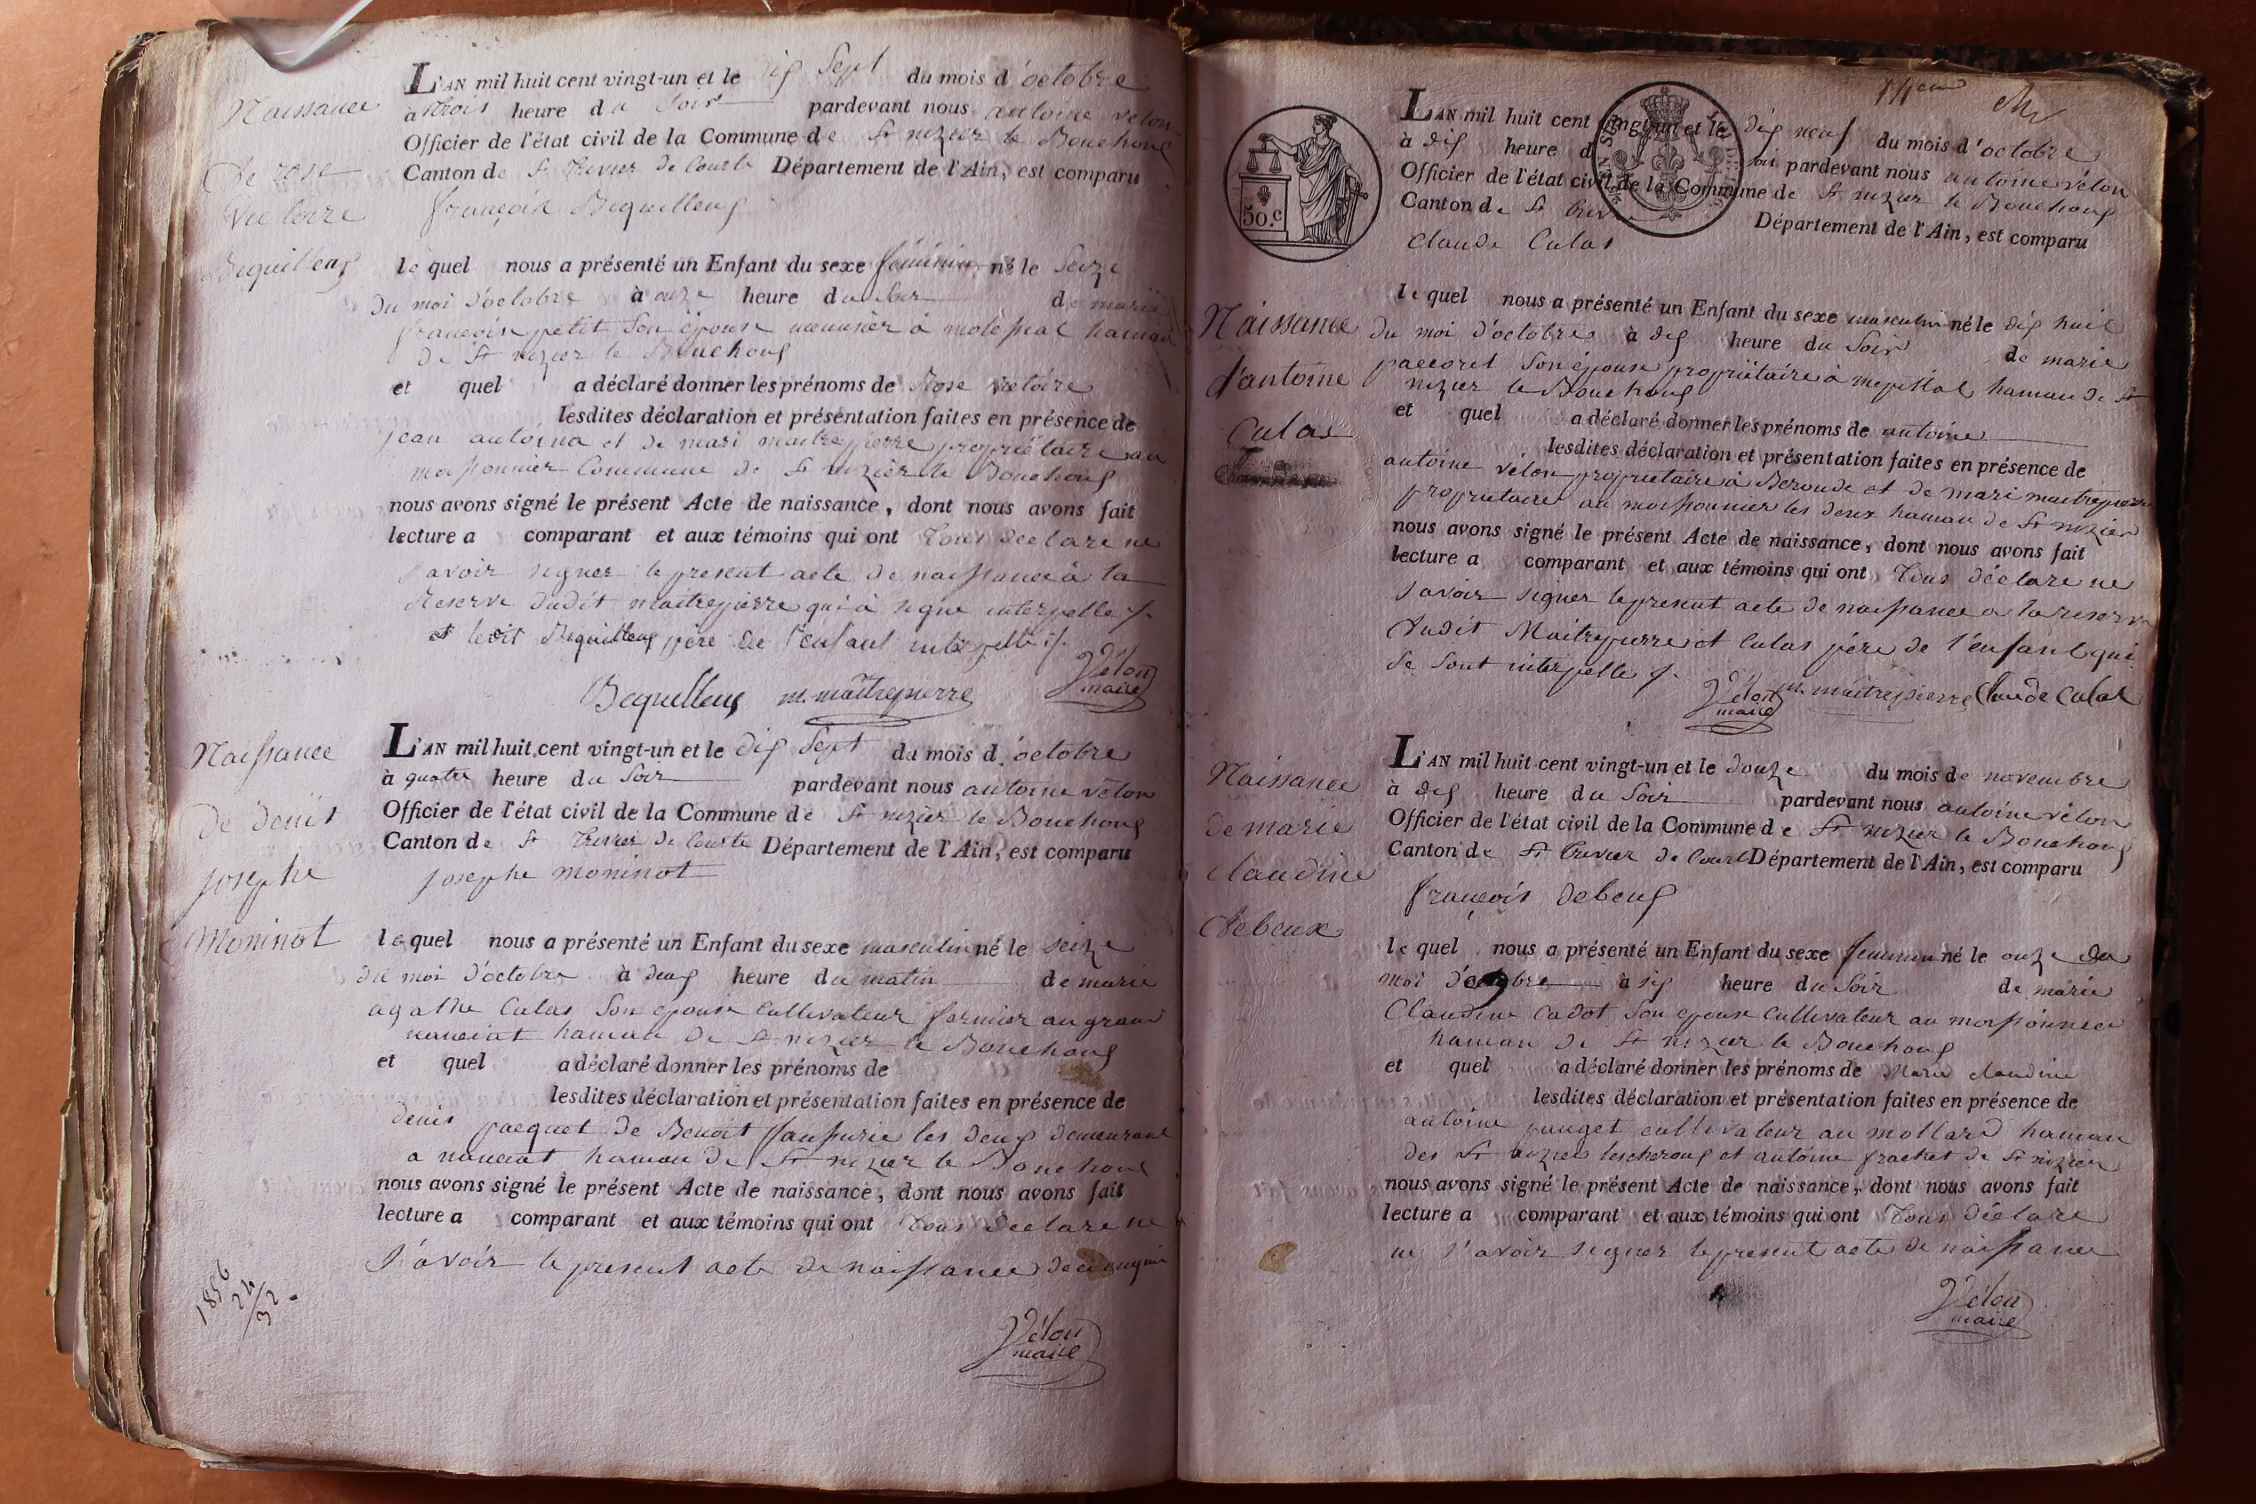 L'AN mil huit cent vingt-un et le dix Sept du mois d'octobre
à trois heure du Soir pardevant nous antoine vélon
Officier de l'état civil de la Commune de St nizier le Bouchoux
Canton de St Trivier de Courte Département de l'Ain, est comparu
françois Bequilleux
Naissance
De rose
victoire
Bequilleux
le quel nous a présenté un Enfant du sexe féminin né le Seize
Du moi d'octobre à onze heure du Soir de marie
françoise petit Son épouse meunier à hamau
de St nizier le Bouchoux
et quel a déclaré donner les prénoms de Rose victoire
lesdites déclaration et présentation faites en présence de
jean antoine et de mari maitrepierre propriétaire au
moissonnier Commune de St nizier le Bouchoux
nous avons signé le présent Acte de naissance, dont nous avons fait
lecture a comparant et aux témoins qui ont Tous déclare ne
savoir signer le present acte de naissance à la
Reserve dudit maitrepierre qui à signe interpelle /.
et ledit Bequilleux père de l'enfant interpelle /.
Bequilleux m. maîtrepierre Vélon
maire
L'AN mil huit cent vingt-un et le dix Sept du mois d'octobre
à quatre heure du Soir pardevant nous antoine vélon
Officier de l'état civil de la Commune de St nizier le Bouchoux
Canton de St Trivier de Courte Département de l'Ain, est comparu
josephe moninot
Naissance
De denis
josephe
Moninot
le quel nous a présenté un Enfant du sexe masculin né le seize
du moi d'octobre à deux heure du matin de marie
agathe Culas Son epouse Cultivateur fermier au grand
hamau de St nizier le Bouchoux
et quel a déclaré donner les prénoms de
lesdites déclaration et présentation faites en présence de
denis pacquet de Benoit les deux demeurant
a hamau de St nizier le Bouchoux
nous avons signé le présent Acte de naissance, dont nous avons fait
lecture a comparant et aux témoins qui ont Tous déclare ne
s'avoir le present acte de naissance de ce enquis
Vélon
maire
1856
24/32.
50.c
L'AN mil huit cent vingt-un et le dix neuf du mois d'octobre
à dix heure d soir pardevant nous antoine vélon
Officier de l'état civil de la Commune de St nizier le Bouchoux
Canton de St Triv Département de l'Ain, est comparu
Claude Culas
Naissance
d'antoine
Culas
le quel nous a présenté un Enfant du sexe masculin né le dix huit
du moi d'octobre à dix heure du Soir de marie
paccoret Son épouse propriétaire à hamau de St
nizier le Bouchoux
et quel a déclaré donner les prénoms de antoine
lesdites déclaration et présentation faites en présence de
antoine vélon propriétaire à Beroude et de mari maitrepierre
propriétaire au moissonnier les deux hamau de St nizier
nous avons signé le présent Acte de naissance, dont nous avons fait
lecture a comparant et aux témoins qui ont Tous déclare ne
savoir signer le present acte de naissance a la reserve
dudit Maitrepierre et Culas père de l'enfant qui
Se Sont interpelle /.
Vélon m. maîtrepierre Claude Culas
maire
L'AN mil huit cent vingt-un et le douze du mois de novembre
à dix heure du Soir pardevant nous antoine vélon
Officier de l'état civil de la Commune de St nizier le Bouchoux
Canton de St Trivier de Court Département de l'Ain, est comparu
françois debeux
Naissance
de marie
claudine
debeux
le quel nous a présenté un Enfant du sexe feminin né le onze du
moi à six heure du Soir de marie
Claudine Cadot Son epouse Cultivateur au moissonnier
hamau de St nizier le Bouchoux
et quel a déclaré donner les prénoms de Marie claudine
lesdites déclaration et présentation faites en présence de
antoine pauget cultivateur au mollard hamau
des St nizier et antoine frachet de St nizier
nous avons signé le présent Acte de naissance, dont nous avons fait
lecture a comparant et aux témoins qui ont Tous déclare
ne s'avoir signer le present acte de naissance
Vélon
maire